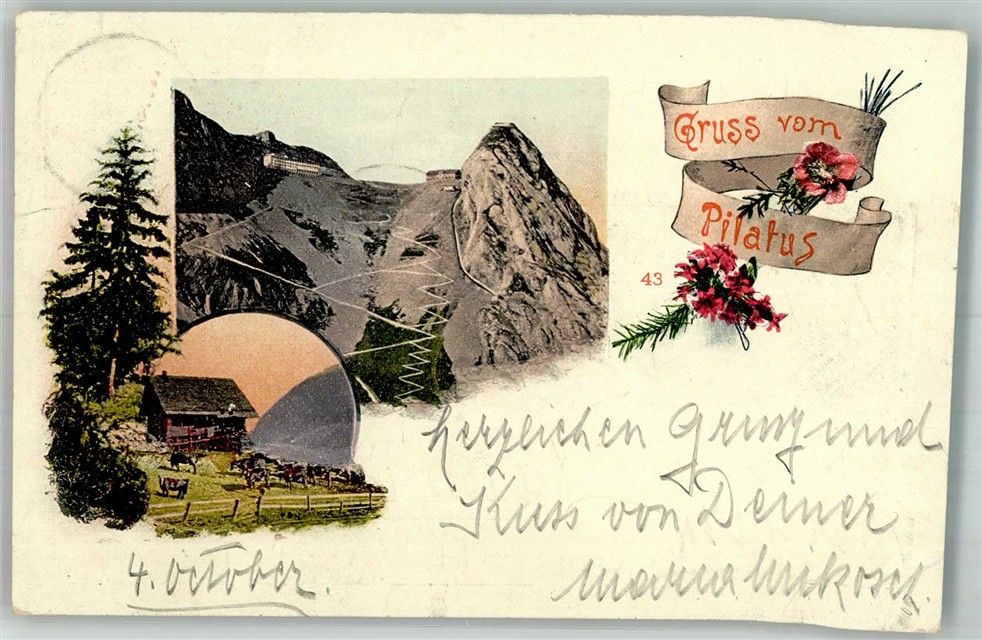 Gruss vom
Pilatus
43
herzlichen Gruss und
Kuss von Deiner
Maria
4. October.